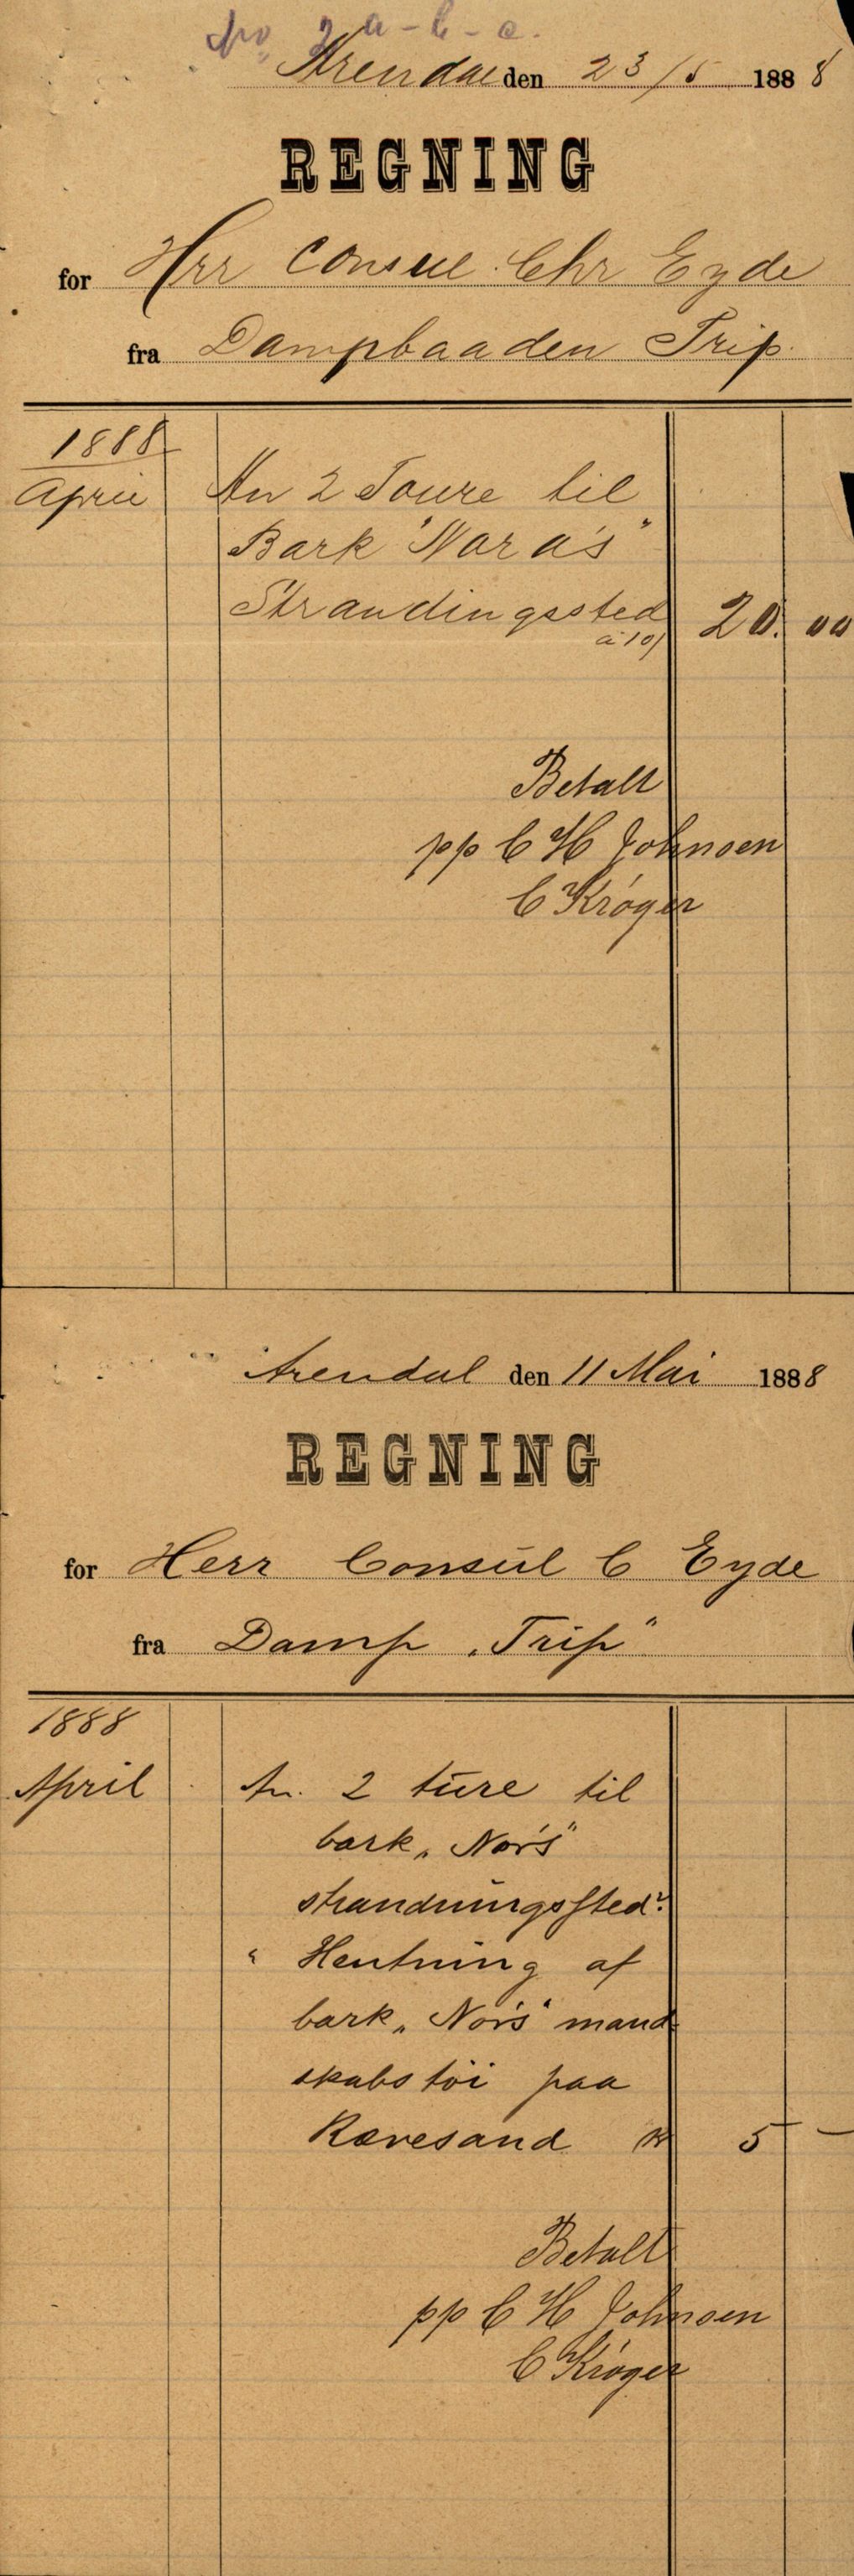 No 2 a - b - c.
Arendal den 23/5 1888
REGNING
for Hrr Consul Chr Eyde
fra Dampbaaden Trip.
1888
April An 2 Toure til
Bark "Nora's"
Strandingssted 20. 00
à 10/
Betalt
pp C H Johnsen
C Krøger
Arendal den 11 Mai 1888
REGNING
for Herr Consul C Eyde
fra Damp „Trip"
1888
April An. 2 ture til
bark „Nor's"
strandningssted
" Hentning af
bark „Nor's" mand-
skabstöi paa
Rævesand Kr 5 —
Betalt
pp C H Johnsen
C Krøger